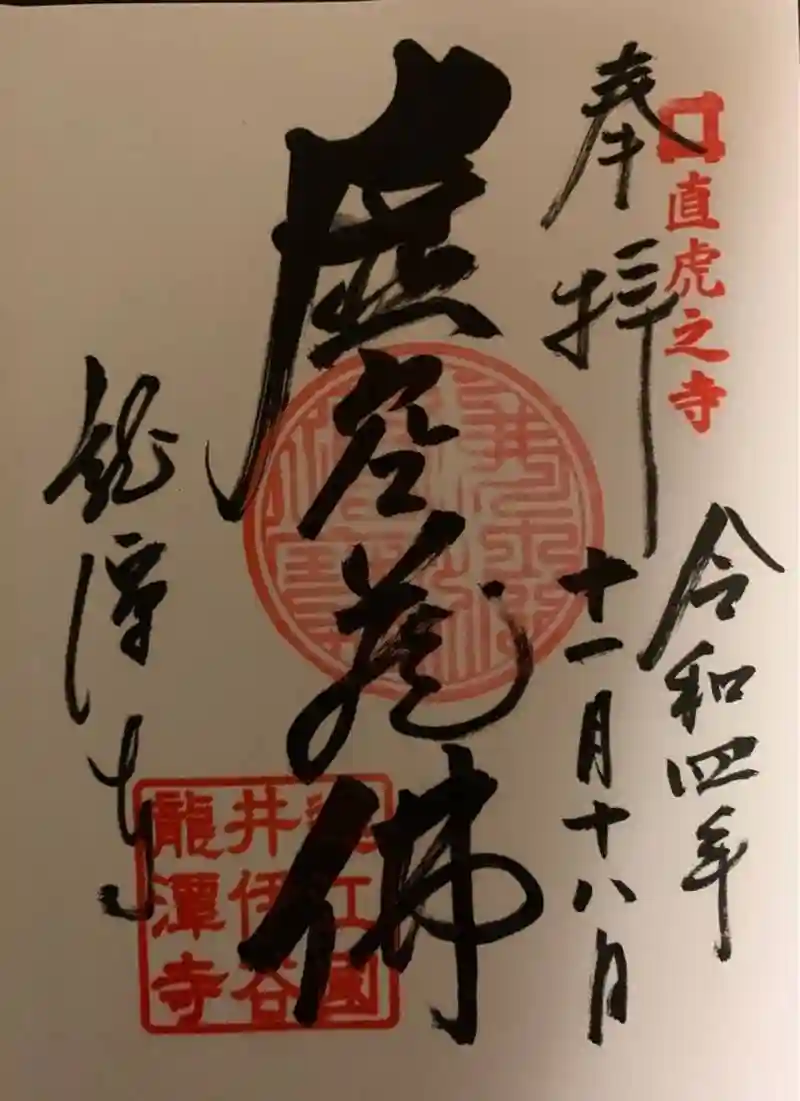 直虎之寺
奉拝
令和四年
十一月十八日
虚空蔵佛
龍潭寺
遠江國
井伊谷
龍潭寺